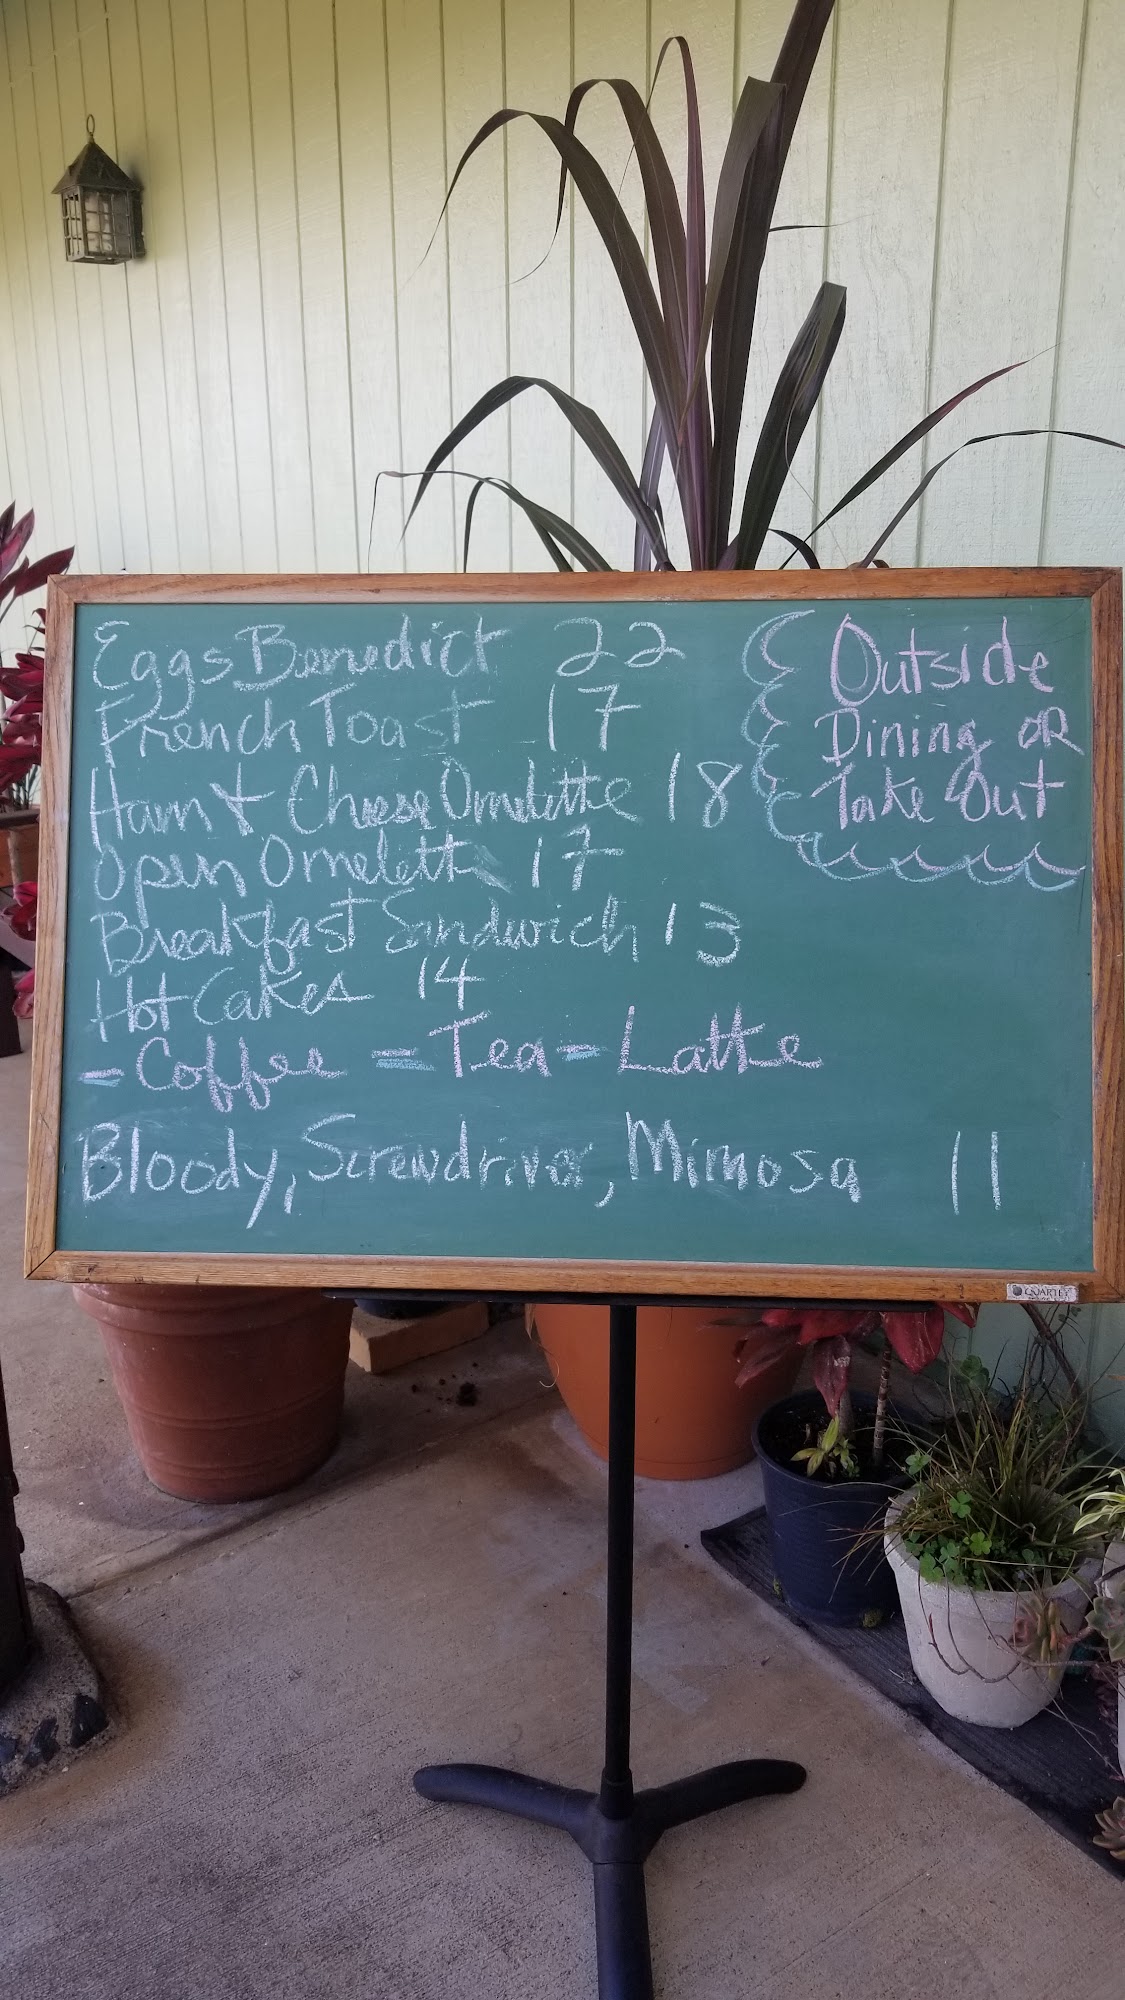 Eggs Benedict 22
French Toast 17
Ham & Cheese Omelette 18
Open Omelette 17
Breakfast Sandwich 13
Hot Cakes 14
- Coffee - Tea - Latte
Bloody, Screwdriver, Mimosa 11
Outside
Dining OR
Take Out
QUARTET